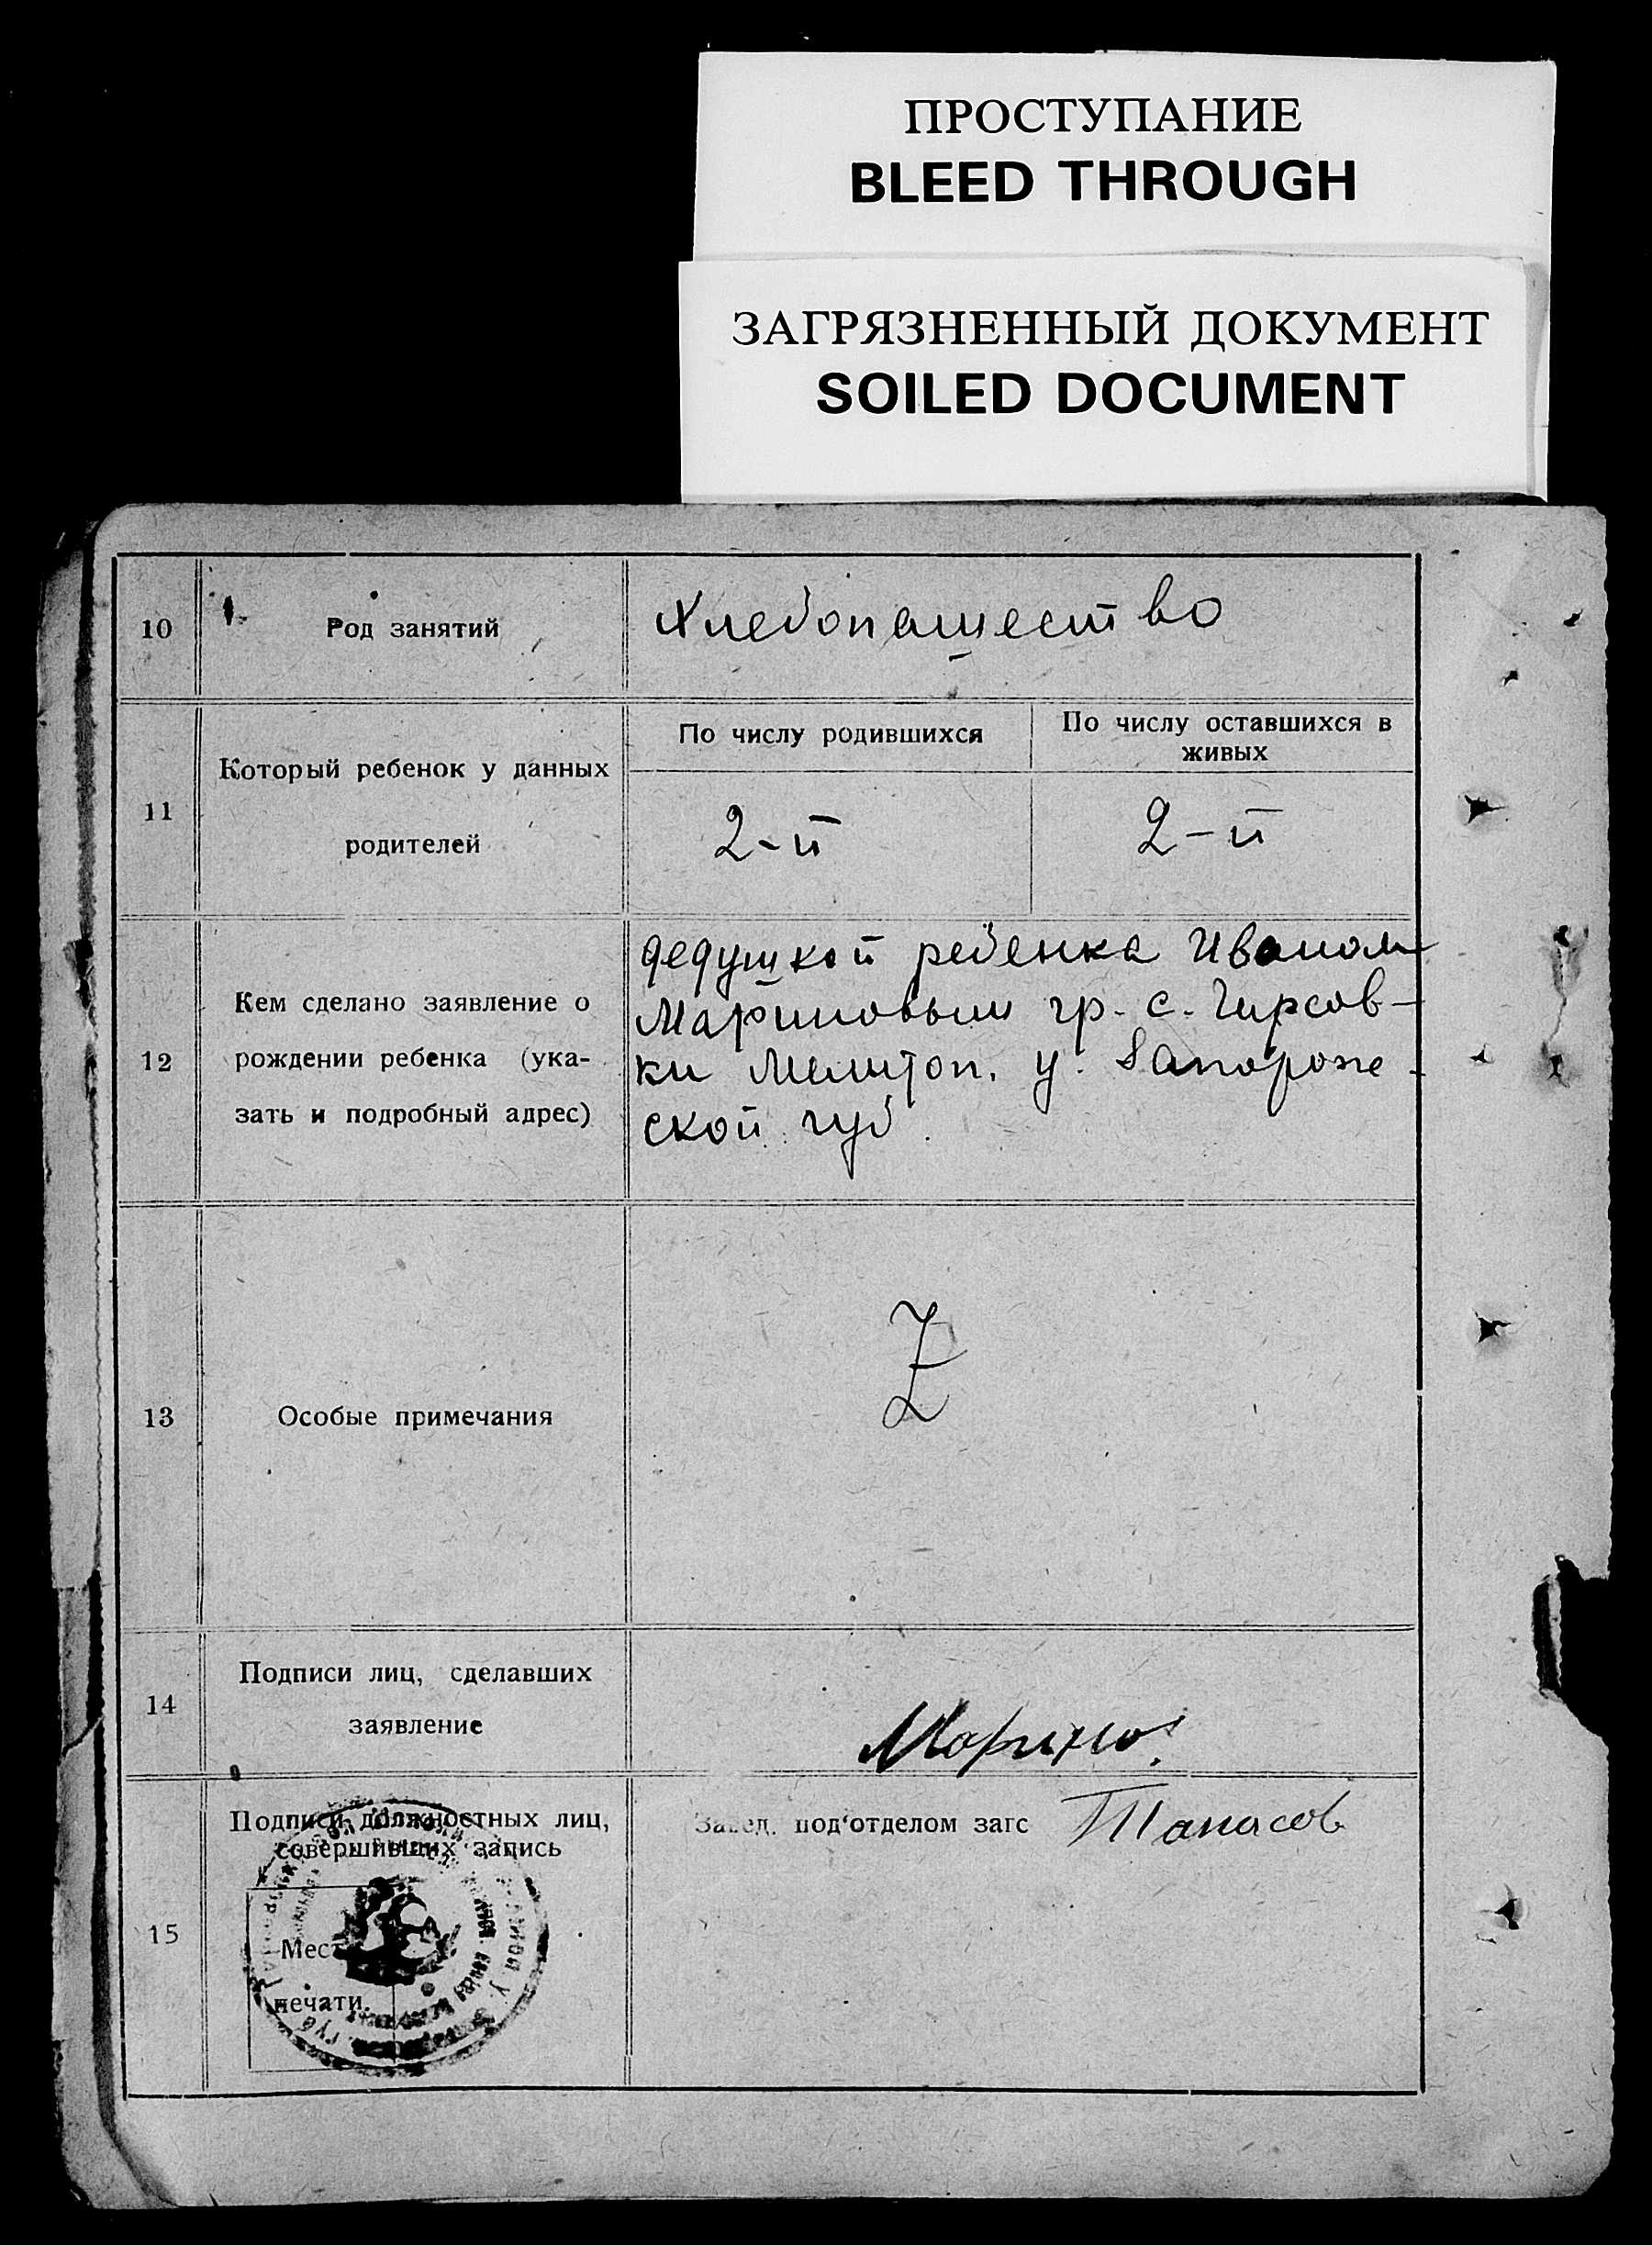 ПРОСТУПАНИЕ
BLEED THROUGH
ЗАГРЯЗНЕННЫЙ ДОКУМЕНТ
SOILED DOCUMENT
10
Род занятий
Хлебопашество
11
Который ребенок у данных
родителей
По числу родившихся
По числу оставшихся в
живых
2-й
2-й
12
Кем сделано заявление о
рождении ребенка (ука-
зать и подробный адрес)
дедушкой ребенка Иваном
Мариновым гр. с. Гирсов-
ки Мелитоп. у. Запорож-
ской губ.
13
Особые примечания
Z
14
Подписи лиц, сделавших
заявление
Маринов
15
Подписи должностных лиц,
совершивших запись
Место
печати.
Завед. под'отделом загс
Танасов